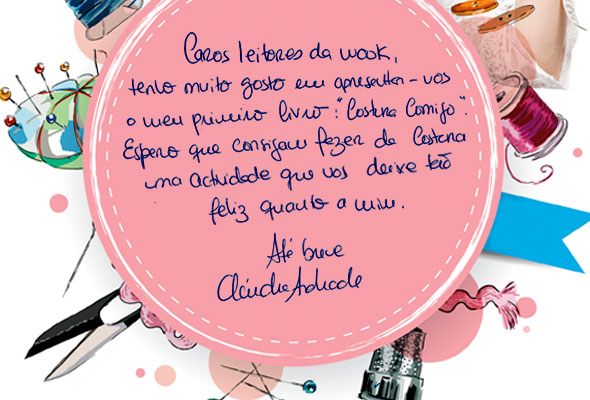 Caros leitores da wook,
tenho muito gosto em apresentar-vos
o meu primeiro livro: "Costura Comigo".
Espero que consigam fazer da Costura
uma actividade que vos deixe tão
feliz quanto a mim.
Até breve
Cláudia Andrade